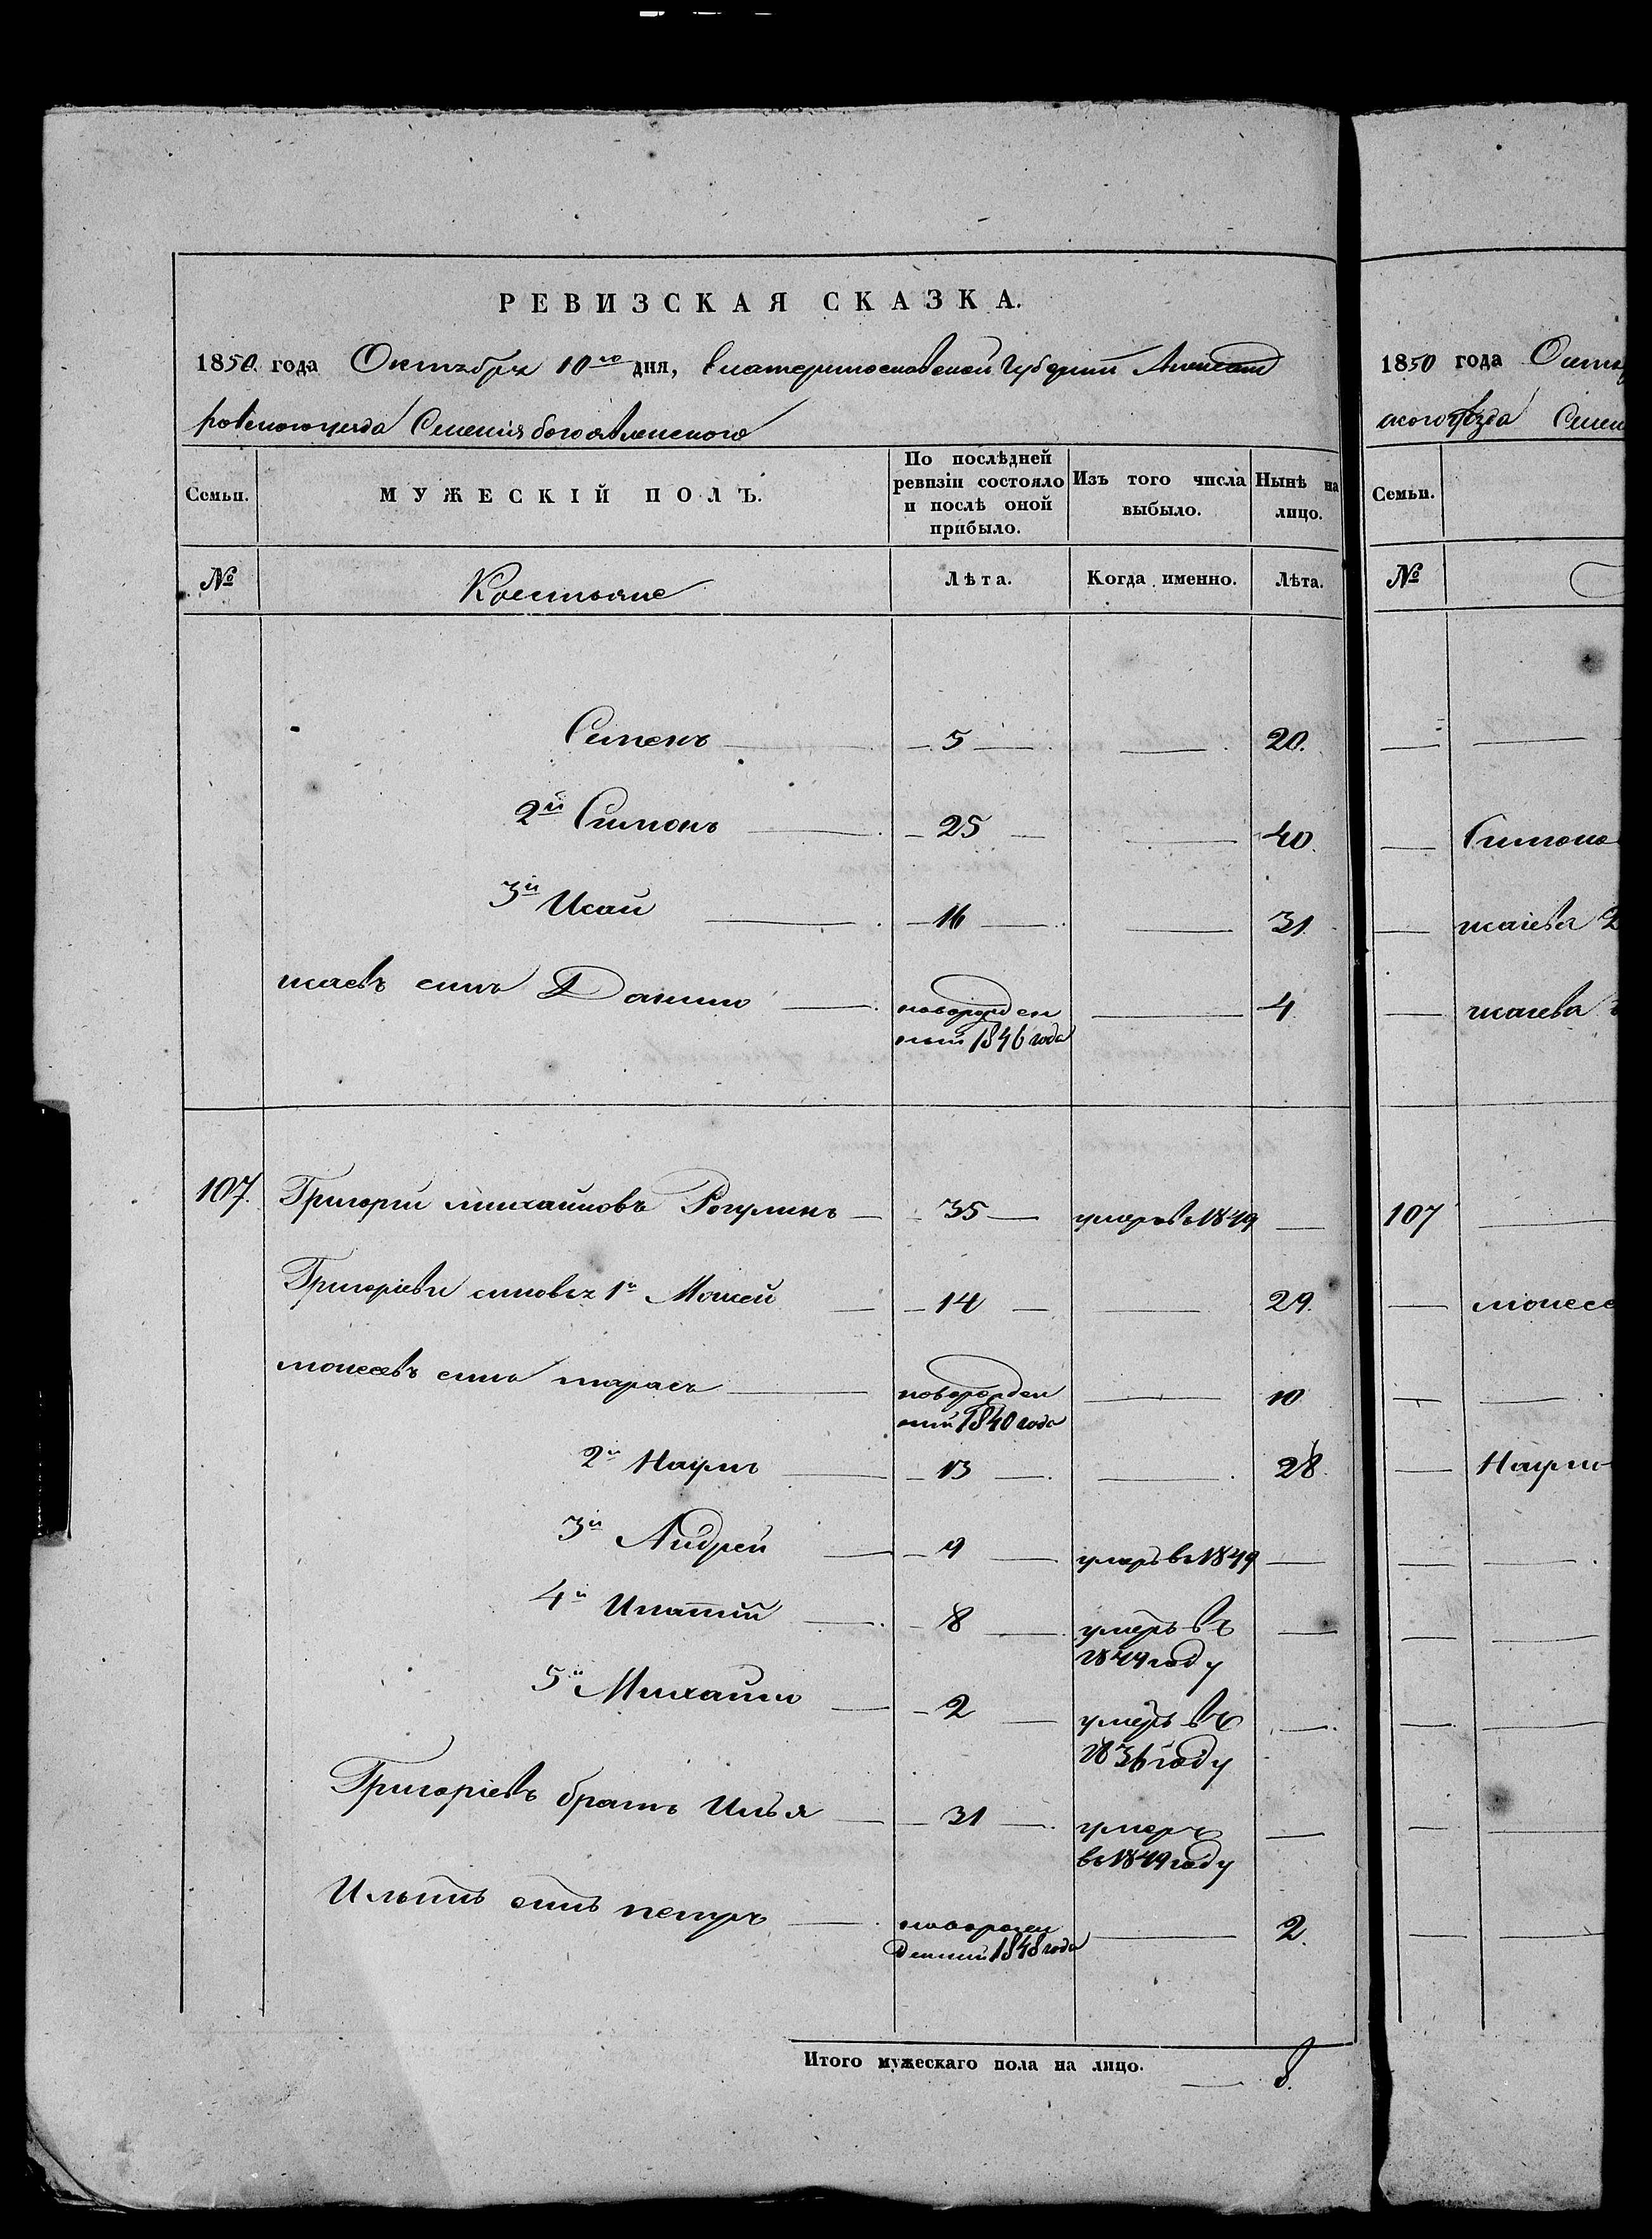 РЕВИЗСКАЯ СКАЗКА.
1850 года Октября 10го дня, Екатеринославской Губернии Александ
ровского уезда Селения богоявленского
Семьи. МУЖЕСКІЙ ПОЛЪ. По послѣдней ревизіи состояло и послѣ оной прибыло. Изъ того числа выбыло. Нынѣ на лицо.
№ Крестьяне Лѣта. Когда именно. Лѣта.
Семенъ — 5 — — 20.
2й Симонъ — 25 — — 40.
3й Исай — 16 — — 31.
исаевъ сынъ Данило — новорожден — 4
ный 1846 года
107. Григорій михайловъ Рогулинъ — 35 — умеръ въ 1849 —
Григоріевы сыновья 1й Моисей — 14 — — 29.
моисеевъ сынъ тарасъ — новорожден — 10
ный 1840 года
2й Наумъ — 13 — — 28.
3й Андрей — 9 — умеръ въ 1849 —
4й Игнатій — 8 — умеръ въ —
1844 году
5й Михайло — 2 — умеръ въ —
1836 году
Григоріевъ братъ Илья — 31 — умеръ —
въ 1849 году
Ильинъ сынъ петръ — новорож — 2.
денный 1848 года
Итого мужескаго пола на лицо. — 8.
1850 года Октя
ского уѣзда Селен
Семьи.
№
Симоно
исаева 2
исаева
107 —
моисее
Наумо